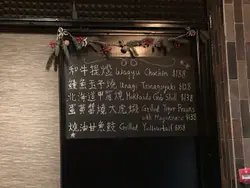 和牛提燈 Wagyu Chochin $138
鰻魚玉子燒 Unagi Tamagoyaki $128
北海道甲羅燒 Hokkaido Crab Shell $138
蛋黃醬燒大虎蝦 Grilled Tiger Prawns
with Mayonnaise
燒油甘魚鮫 Grilled Yellowtail